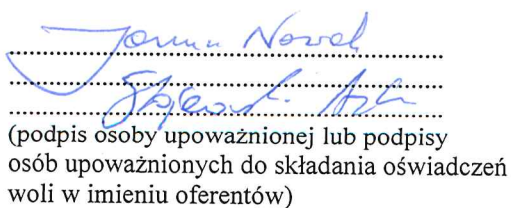 Nowak
(podpis osoby upoważnionej lub podpisy
osób upoważnionych do składania oświadczeń
woli w imieniu oferentów)